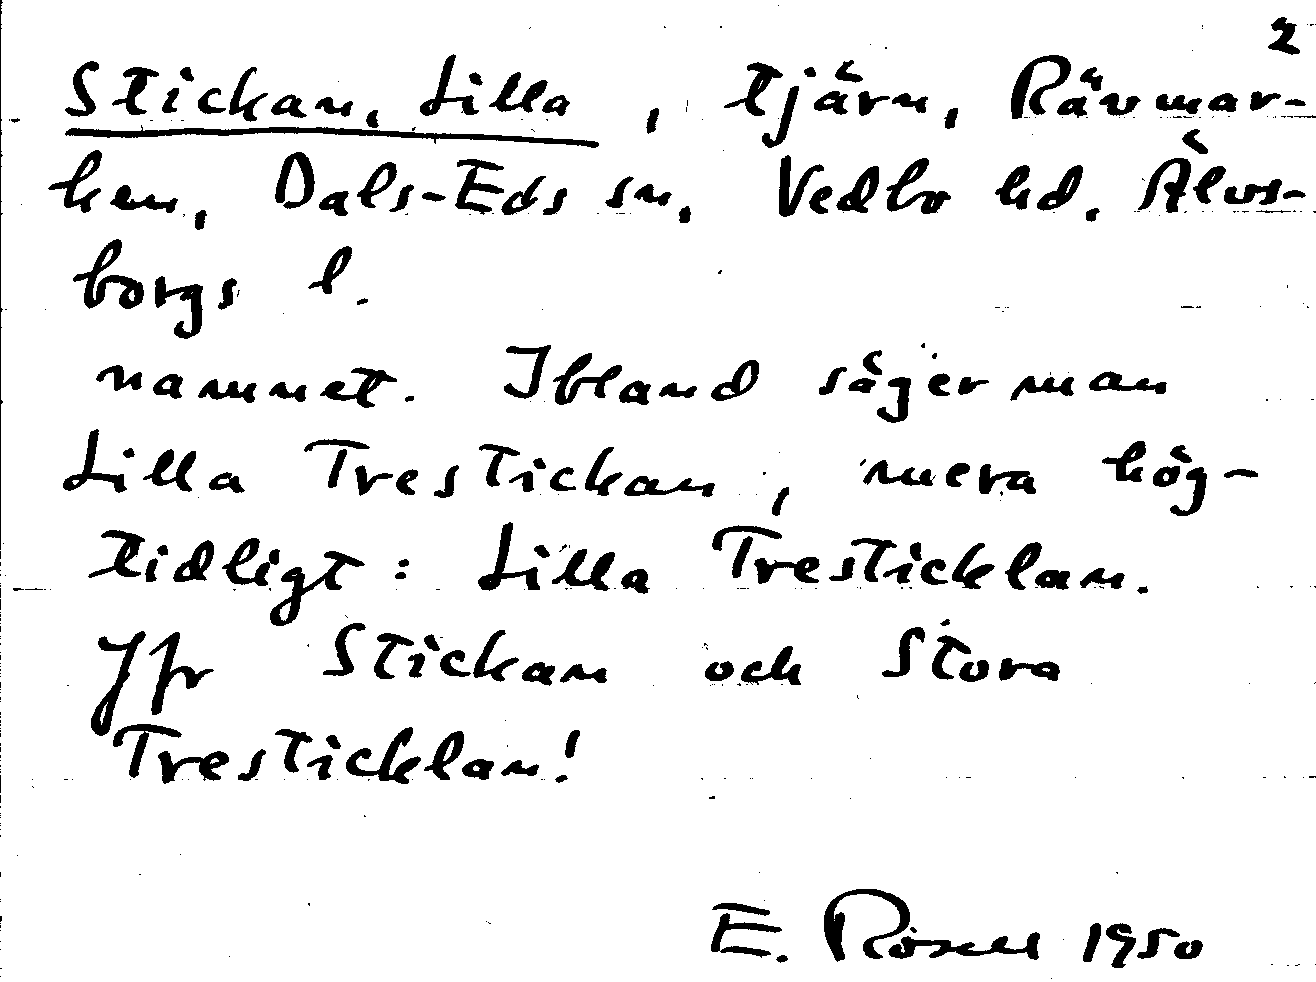 2
Stickan, Lilla, tjärn, Rävmar-
ken, Dals-Eds sn, Vedbo hd. Älvs-
borgs l.
namnet. Ibland säger man
Lilla Trestickan, mera hög-
tidligt: Lilla Tresticklan.
Jfr Stickan och Stora
Tresticklan!
E. Rosell 1950